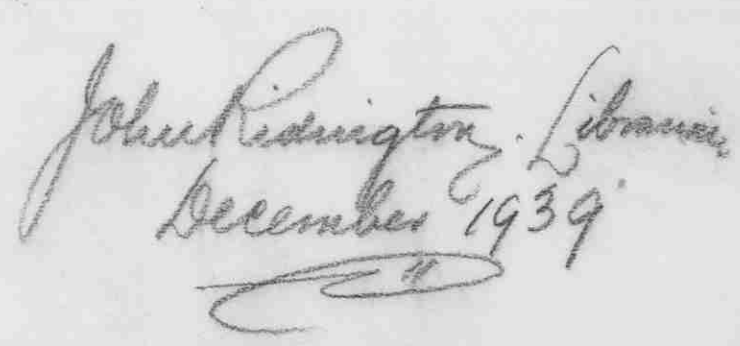 John Ridington. Librarian
December 1939